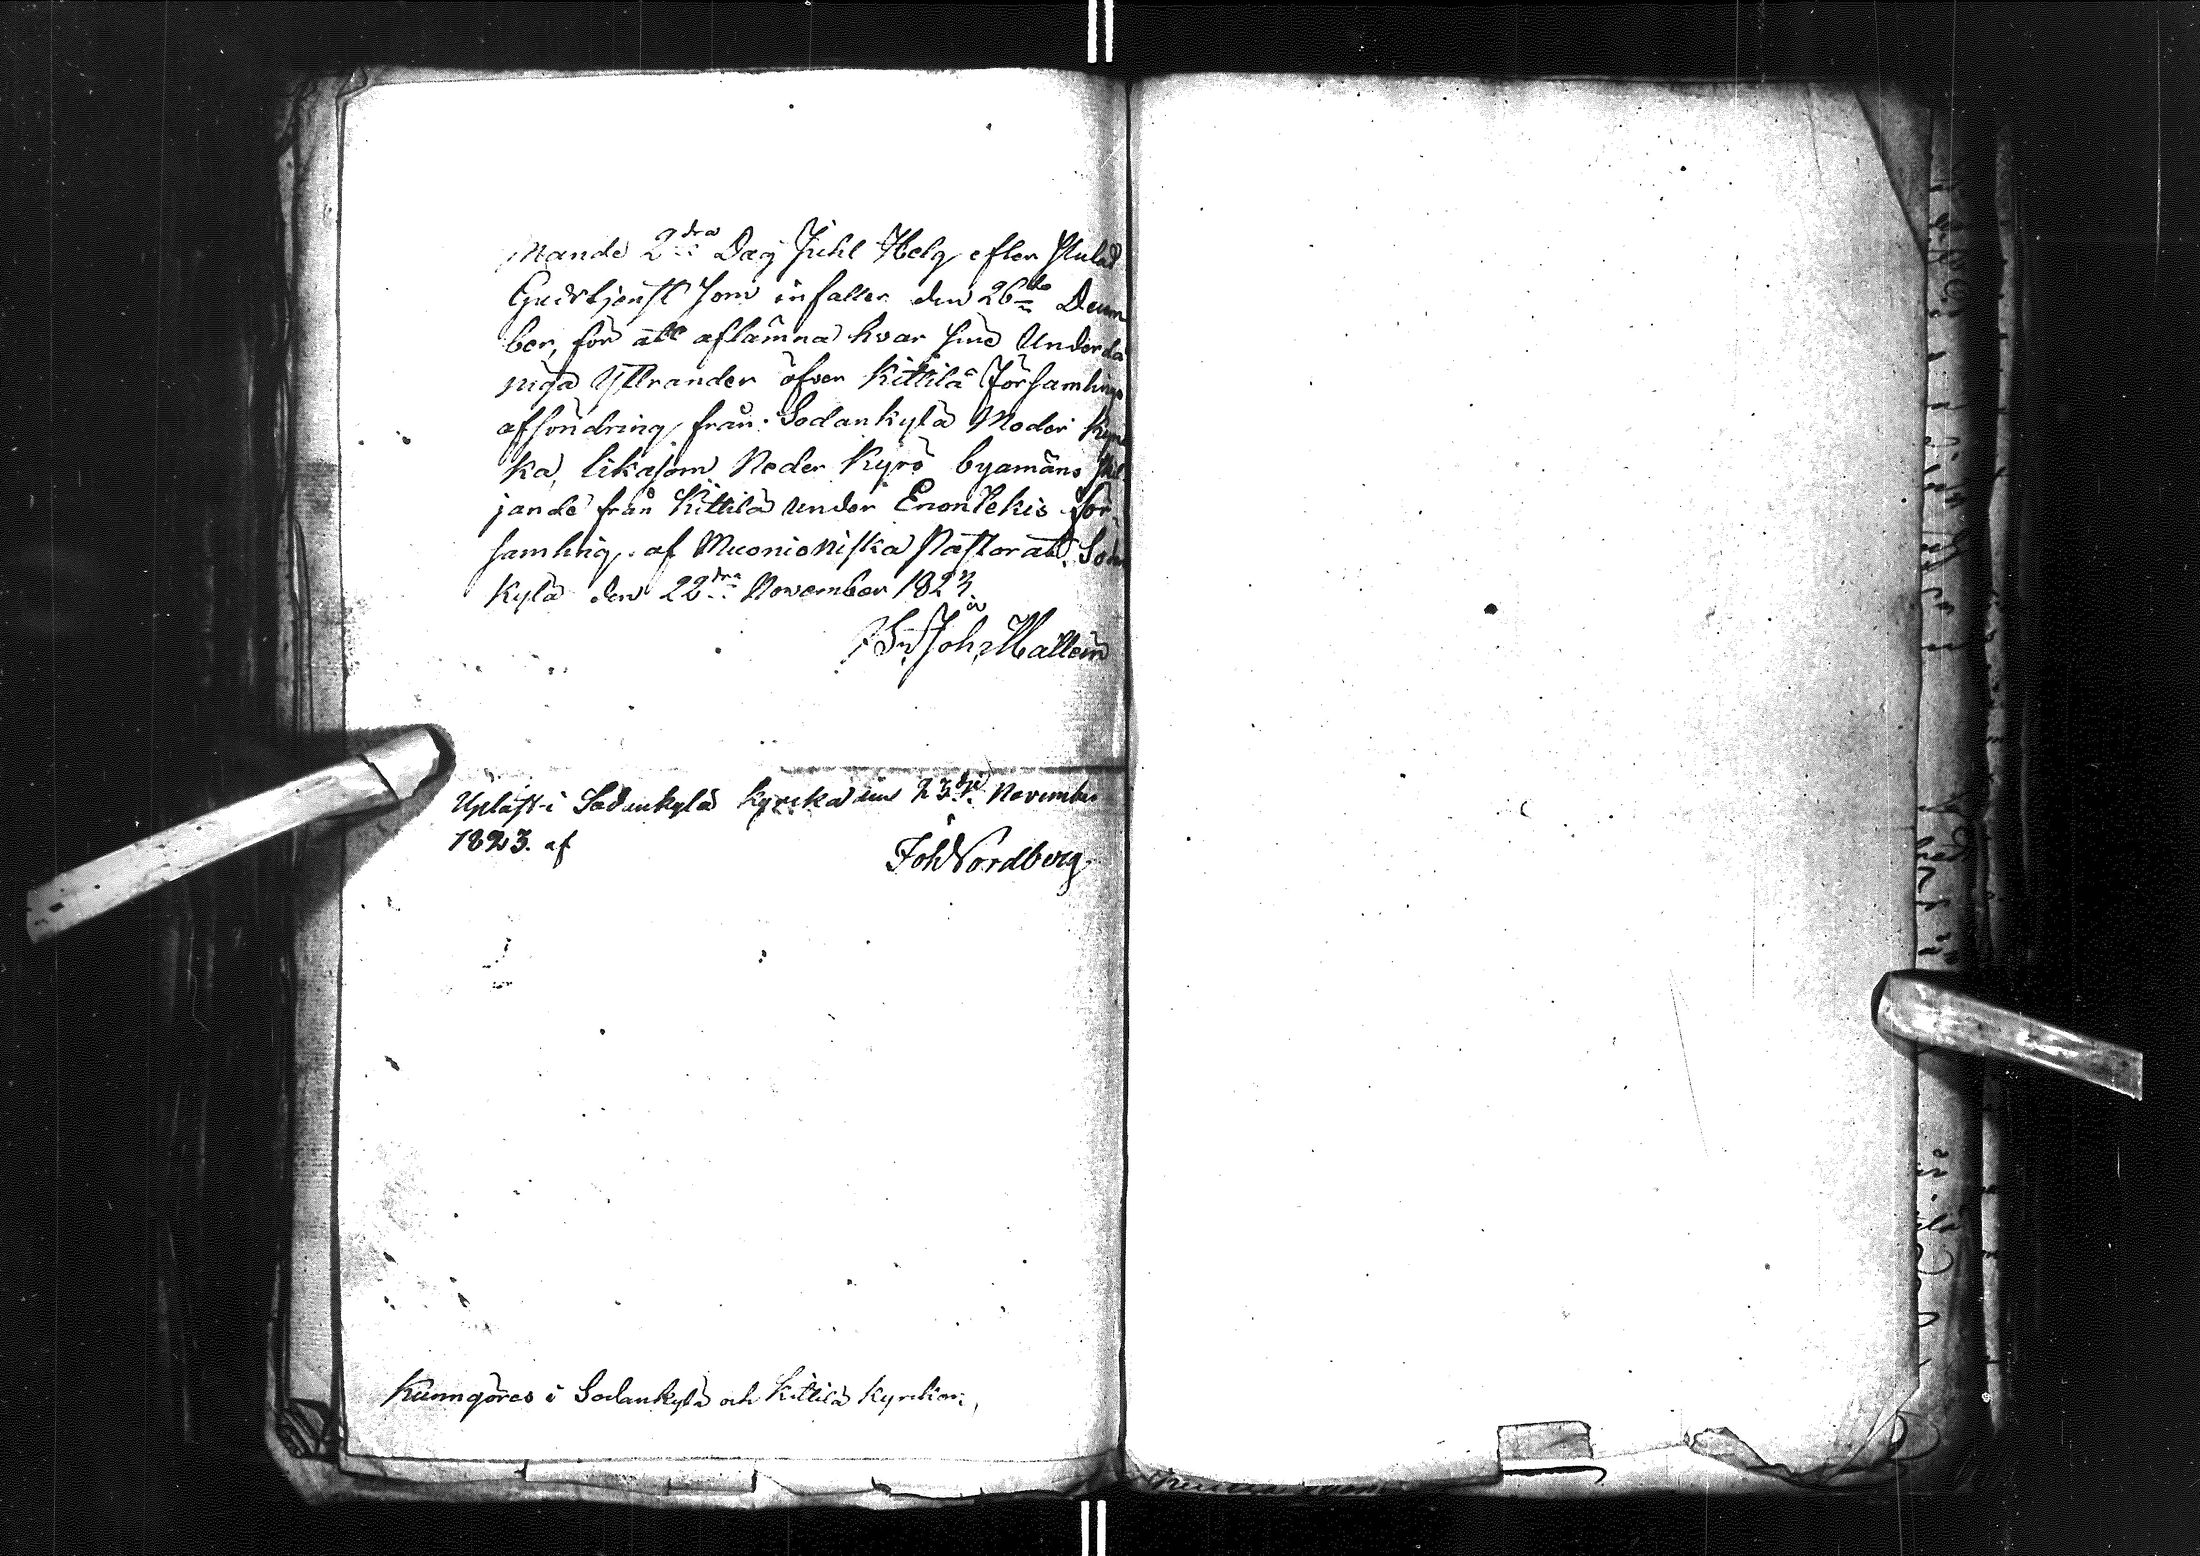 mande 2dra Dag Juhl Helg efter slutad
Gudstjenst som infaller den 26te Decem
ber, för att aflämna hvar sine Underdå
niga Yttrander öfver Kittilä Församlings
afsöndring från Sodankylä Moder Kyrc
ka, likasom Neder Kyrö byamäns skil
jande från Kittilä under Enontekis för-
samling af Muonioniska Pastorat. Sodan
kylä den 22dra November 1823.
Joh. Wallein
Upläst i Sodankylä Kyrcka den 23dje November
1823. af
Joh Nordberg
Kunngöres i Sodankylä och Kittilä Kyrckor,